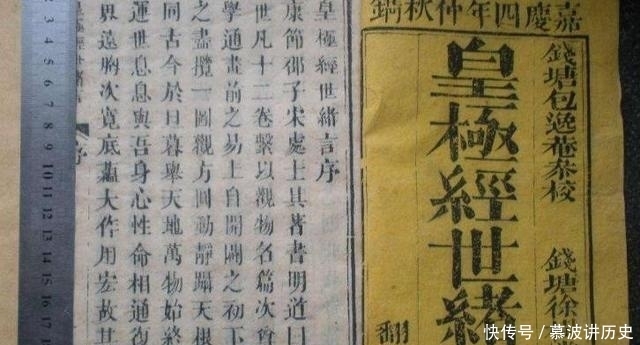 嘉慶四年仲秋鐫
錢塘包逸菴叅校
錢塘徐
皇極經世緒
翻
皇極經世緒言序
康節邵子宋處士其著書明道曰
世凡十二卷繫以觀物名篇次會
學通畫前之易上自開闢之初下
之盡攬一圖觀方圓動靜躡天根
同古今於旦暮舉天地萬物始終
運世息息與吾身心性命相通復
界遠胸次寬底蘊大作用宏故其
序
2 3 4 5 6 7 8 9 10 11 12 13 14 15 16 17
快传号／慕波讲历史